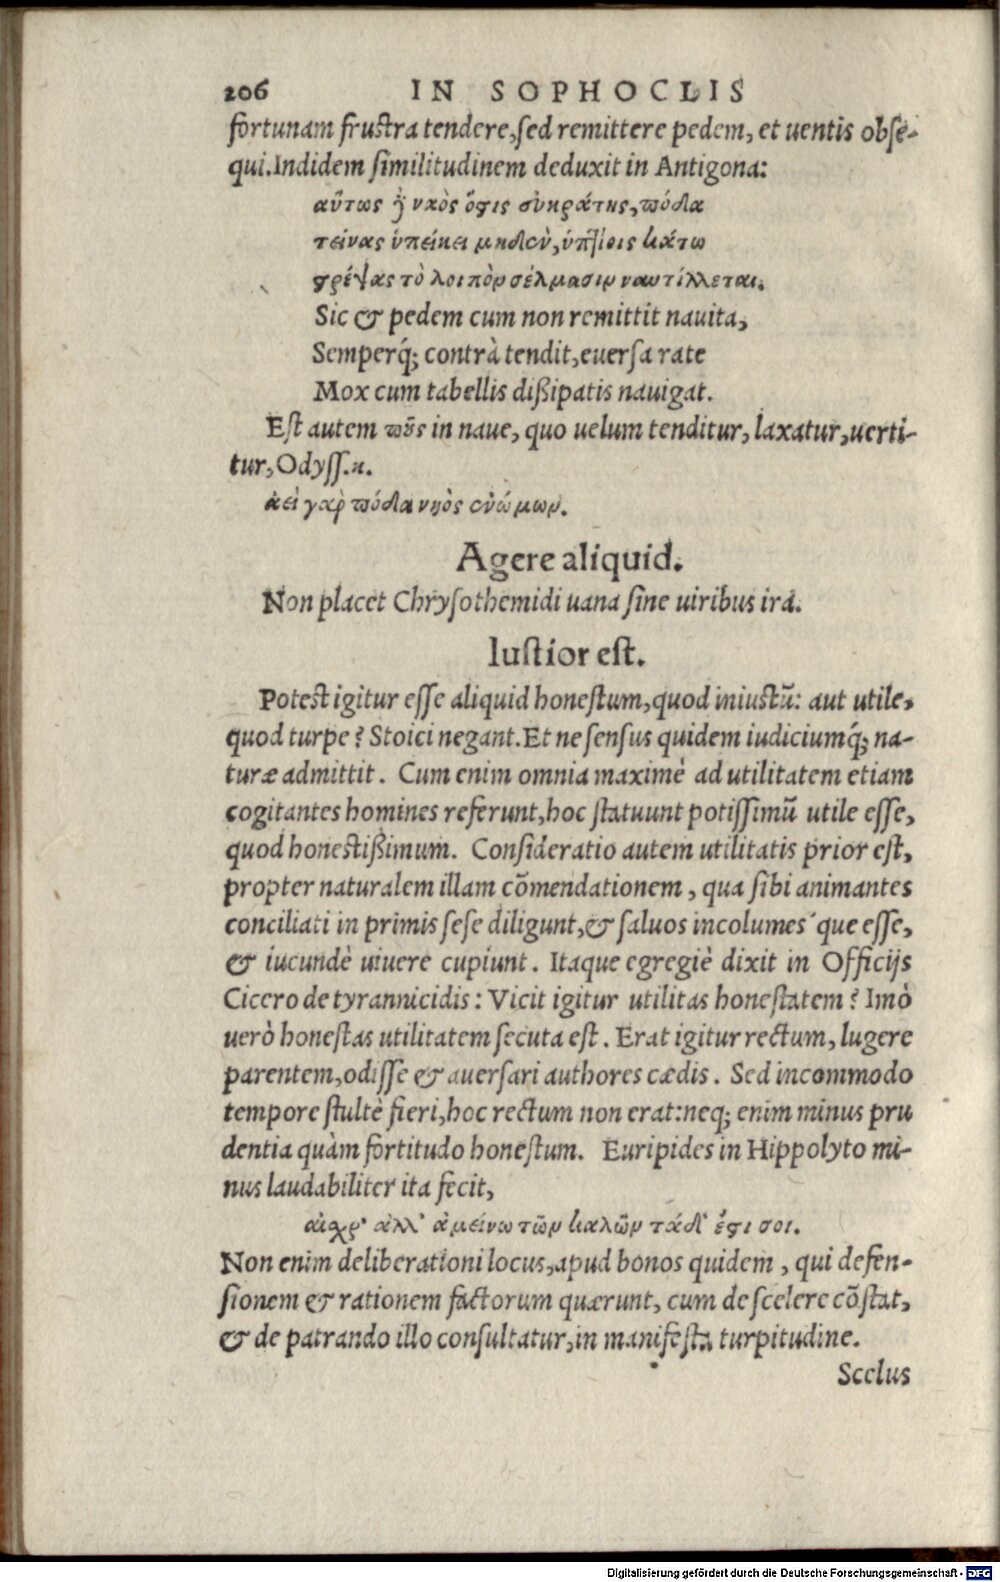 206 IN SOPHOCLIS
fortunam frustra tendere, sed remittere pedem, et uentis obse-
qui. Indidem similitudinem deduxit in Antigona:
αὔτως ἢ ναὸς ὅστις ἐγκράτης, πόδα
τείνας ὑπείκει μηδὲν, ὑπτίοις κάτω
στρέψας τὸ λοιπὸν σέλμασιν ναυτίλλεται.
Sic & pedem cum non remittit nauita,
Semperq́; contrà tendit, euersa rate
Mox cum tabellis dißipatis nauigat.
Est autem ποῦς in naue, quo uelum tenditur, laxatur, uerti-
tur, Odyss.κ.
ἀεὶ γὰρ πόδα νηὸς ἐνώμων.
Agere aliquid.
Non placet Chrysothemidi uana sine uiribus ira.
Iustior est.
Potest igitur esse aliquid honestum, quod iniustū: aut utile,
quod turpe? Stoici negant. Et ne sensus quidem iudiciumq́; na-
turæ admittit. Cum enim omnia maximè ad utilitatem etiam
cogitantes homines referunt, hoc statuunt potissimū utile esse,
quod honestißimum. Consideratio autem utilitatis prior est,
propter naturalem illam cōmendationem, qua sibi animantes
conciliati in primis sese diligunt, & saluos incolumes´que esse,
& iucundè uiuere cupiunt. Itaque egregiè dixit in Officijs
Cicero de tyrannicidis: Vicit igitur utilitas honestatem? Imò
uerò honestas utilitatem secuta est. Erat igitur rectum, lugere
parentem, odisse & auersari authores cædis. Sed incommodo
tempore stultè fieri, hoc rectum non erat: neq; enim minus pru
dentia quàm fortitudo honestum. Euripides in Hippolyto mi-
nus laudabiliter ita fecit,
αἰσχρ' ἀλλ' ἀμείνω τῶν καλῶν τάδ' ἔστι σοι.
Non enim deliberationi locus, apud bonos quidem, qui defen-
sionem & rationem factorum quærunt, cum de scelere cōstat,
& de patrando illo consultatur, in manifesta turpitudine.
Scelus
Digitalisierung gefördert durch die Deutsche Forschungsgemeinschaft - DFG